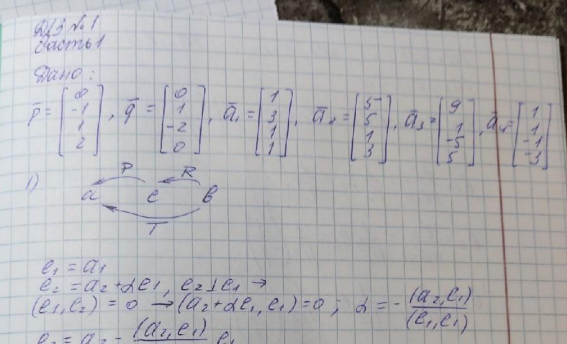 Д/З №1
Часть 1
Дано:
p̄ = [0 -1 1 2], q̄ = [0 1 -2 0], ā₁ = [1 3 1 1], ā₂ = [5 5 1 3], ā₃ = [9 1 -5 5], ā₄ = [1 1 -1 -3]
1) P R
a e b
T
e₁ = a₁
e₂ = a₂ + αe₁, e₂ ⊥ e₁ →
(e₁, e₂) = 0 → (a₂ + αe₁, e₁) = 0; α = - (a₂, e₁) / (e₁, e₁)
e₂ = a₂ - (a₂, e₁) e₁